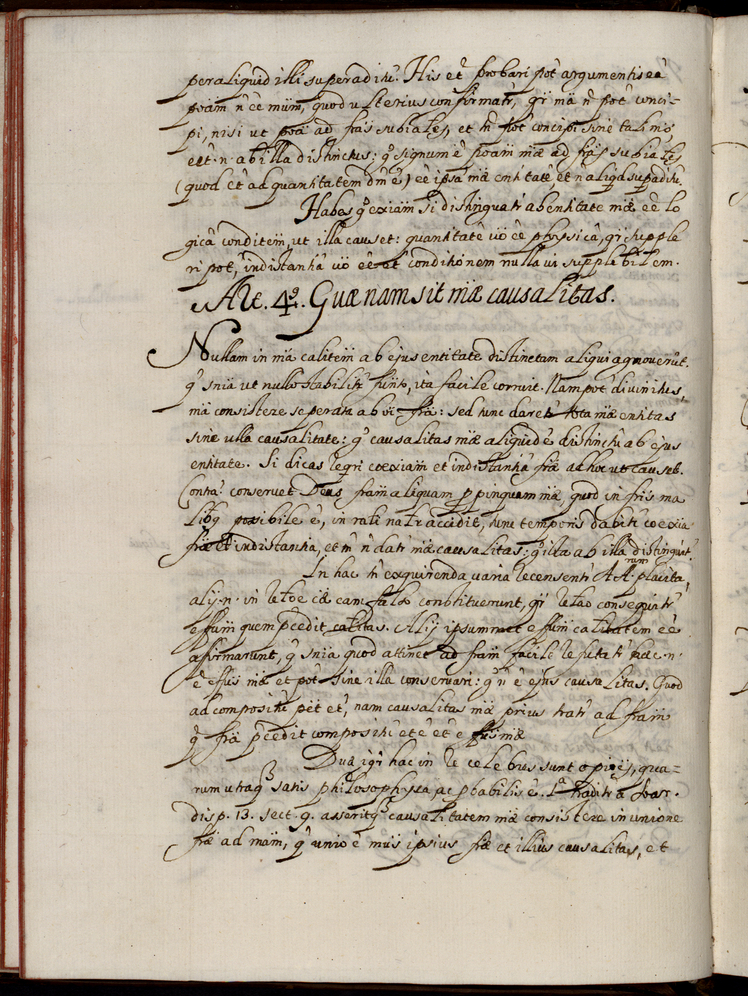 per aliquid illi superaditũ. His et̃ probari põt argumentis eẽ
põam ñ ẽe mũm, quod ulterius confirmatr̃, qr̃ mã ñ põt conci-
pi, nisi ut põa ad frãs subiales, et tñ põt concipi sine tali mõ,
eẽt .n. ab illa distinctus: gͦ signum ẽ põam mæ ad frãs subiales
(quod et̃ ad quantitatem dm̃ẽ) eẽ ipsa mã entitatẽ, et ñ aliqd superadũ.
Habes gͦ exiam si distinguatr̃ ab entitate mæ eẽ lo
gicã conditem, ut illa causet: quantitatẽ uõ ẽe physsicã, qr̃ supple
ri põt, indistantiã uõ eẽ et conditionem nulla ui supplebilem.
Art. 4ͦ. Quænam sit mæ causalitas.
Nullam in mã calitem ab ejus entitate distinctam aliqui agnoverũt.
qͣ snĩa ut nullo stabilitr̃ funtõ, ita facile corruit. Nam põt divinitus,
mã consistere separata ab oi frã: sed tunc daretr̃ tota mæ entitas
sine ulla causalitate: gͦ causalitas mæ aliquid ẽ distinctũ ab ejus
entitate. Si dicas reqri coexiam et indistantiã fræ ad hoc ut causet.
Contrã: conservet Deus frãm aliquam propinquam mæ, quod in fris ma
libq possibile ẽ, in rali nalr̃ accidit, tunc temporis dabitr̃ coexia
fræ et indistantia, et tñ ñ datr̃ mæ causalitas: gͦ illa ab illa distinguitr̃.
In hac tñ exquirenda varia recensentr̃ AA.rum placita,
alij .n. in rẽtõe cã eam falso constituerunt, qr̃ relãõ consequitr̃
effum quem præcedit calitas. Alij ipsummet effum calitatem eẽ
affirmarunt, qͣ snĩa quod attinet ad frãm facile refutatr̃ hæc .n.
ẽ effus mæ et põt sine illa conservari: gͦ ñ ẽ ejus causalitas. Quod
ad compositũ pẽt et̃, nam causalitas mæ prius tratr̃ ad frãm
qͦ frã præcedit compositũ et ẽ et̃ effus mæ
Duæ igr̃ hac in re celebres sunt opiões, qua-
rum utraqꝫ satis philosophyca, ac pbabilis ẽ. 1.ª traditr̃ a Soar.
disp. 13. sect. 9. asseritqꝫ causalitatem mæ consistere in unione
fræ ad mãm, qͣ unio ẽ mũs ipsius fræ et illius causalitas, et